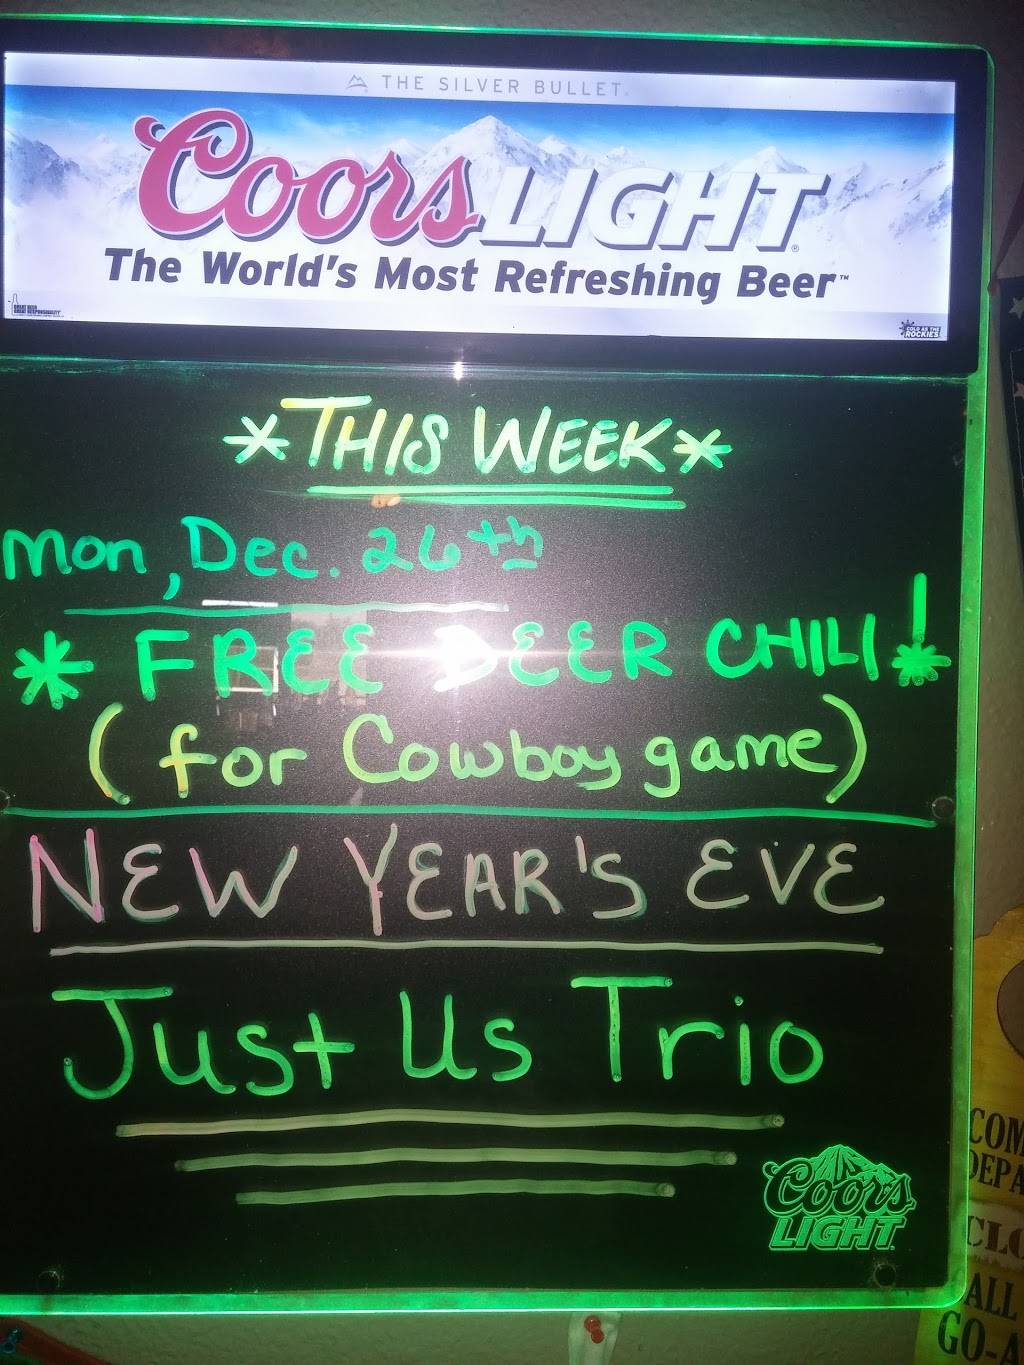 THE SILVER BULLET.
Coors LIGHT®
The World's Most Refreshing Beer™
GREAT BEER
GREAT RESPONSIBILITY
COLD AS THE
ROCKIES
*THIS WEEK*
Mon, Dec. 26th
* FREE DEER CHILI!*
(for Cowboy game)
NEW YEAR'S EVE
Just Us Trio
Coors
LIGHT
COM
DEPA
CLO
ALL
GO-A